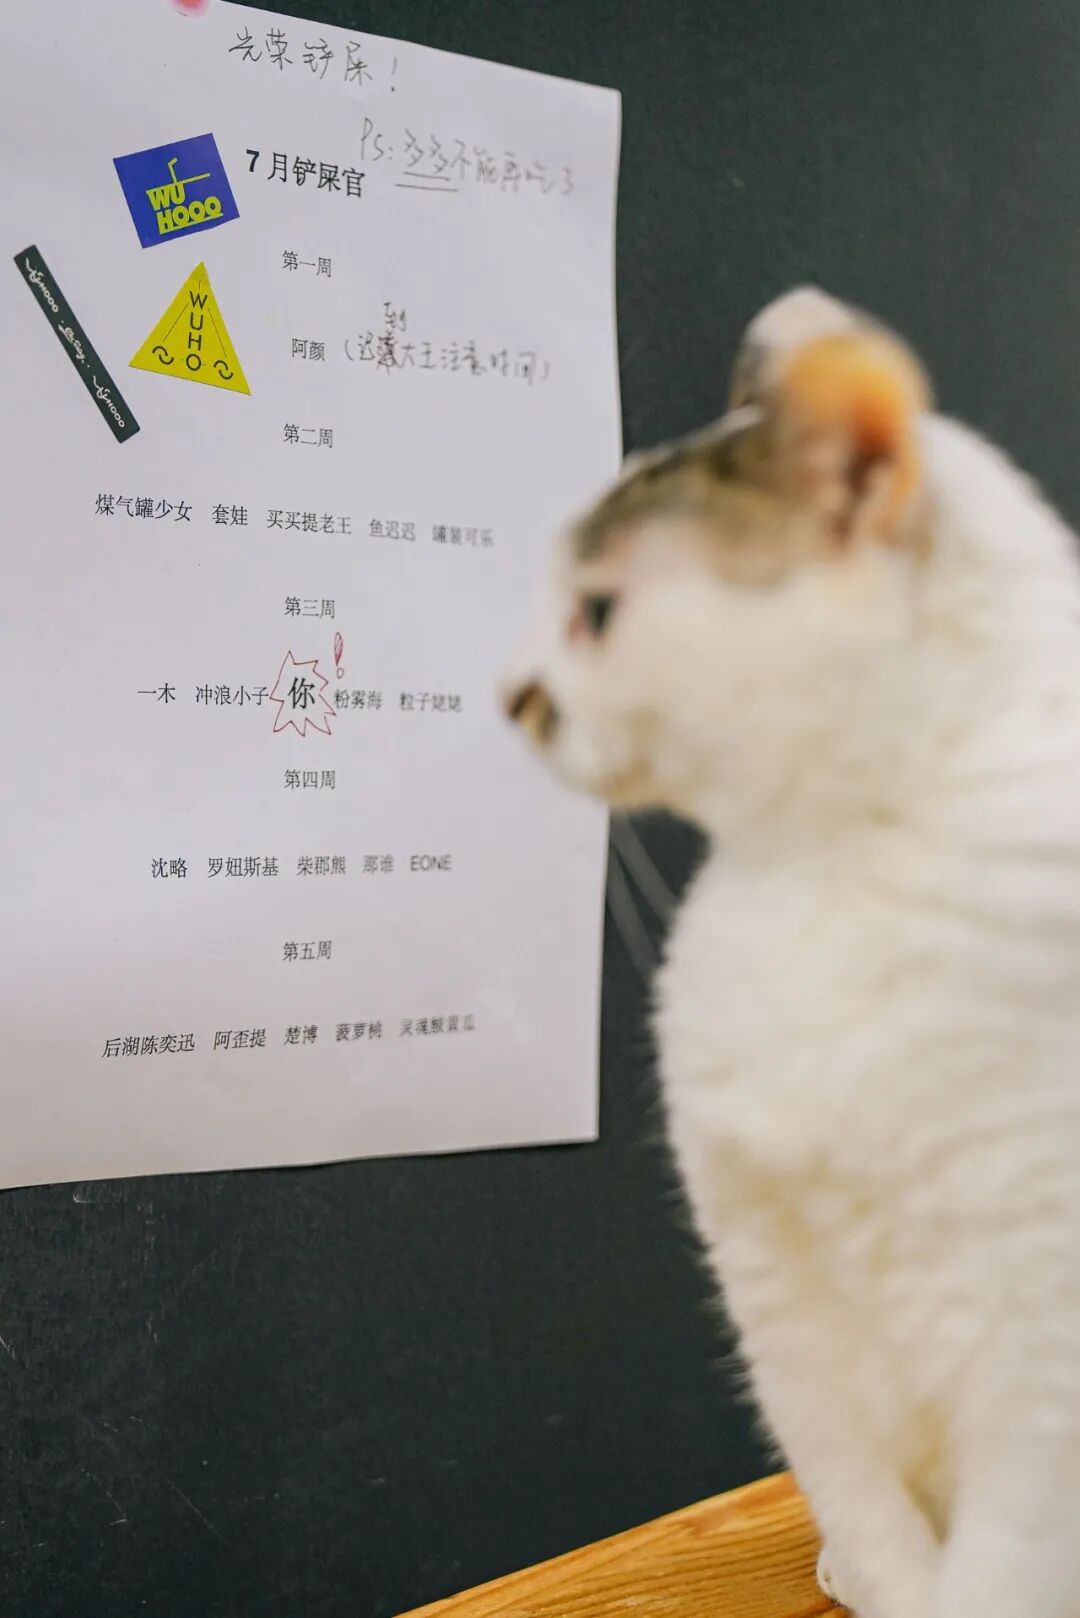 光荣铲屎！
Ps：多多不能再吃了
7月铲屎官
WU
HOOO
WUHOOO
WUHOOO
WUHO
第一周
阿颜（迟到大王注意时间）
第二周
煤气罐少女 套娃 买买提老王 鱼迟迟 罐装可乐
第三周
一木 冲浪小子 你！ 粉雾海 粒子姥姥
第四周
沈略 罗妞斯基 柴郡熊 那谁 EONE
第五周
后湖陈奕迅 阿歪提 楚博 菠萝桃 灵魂酸黄瓜